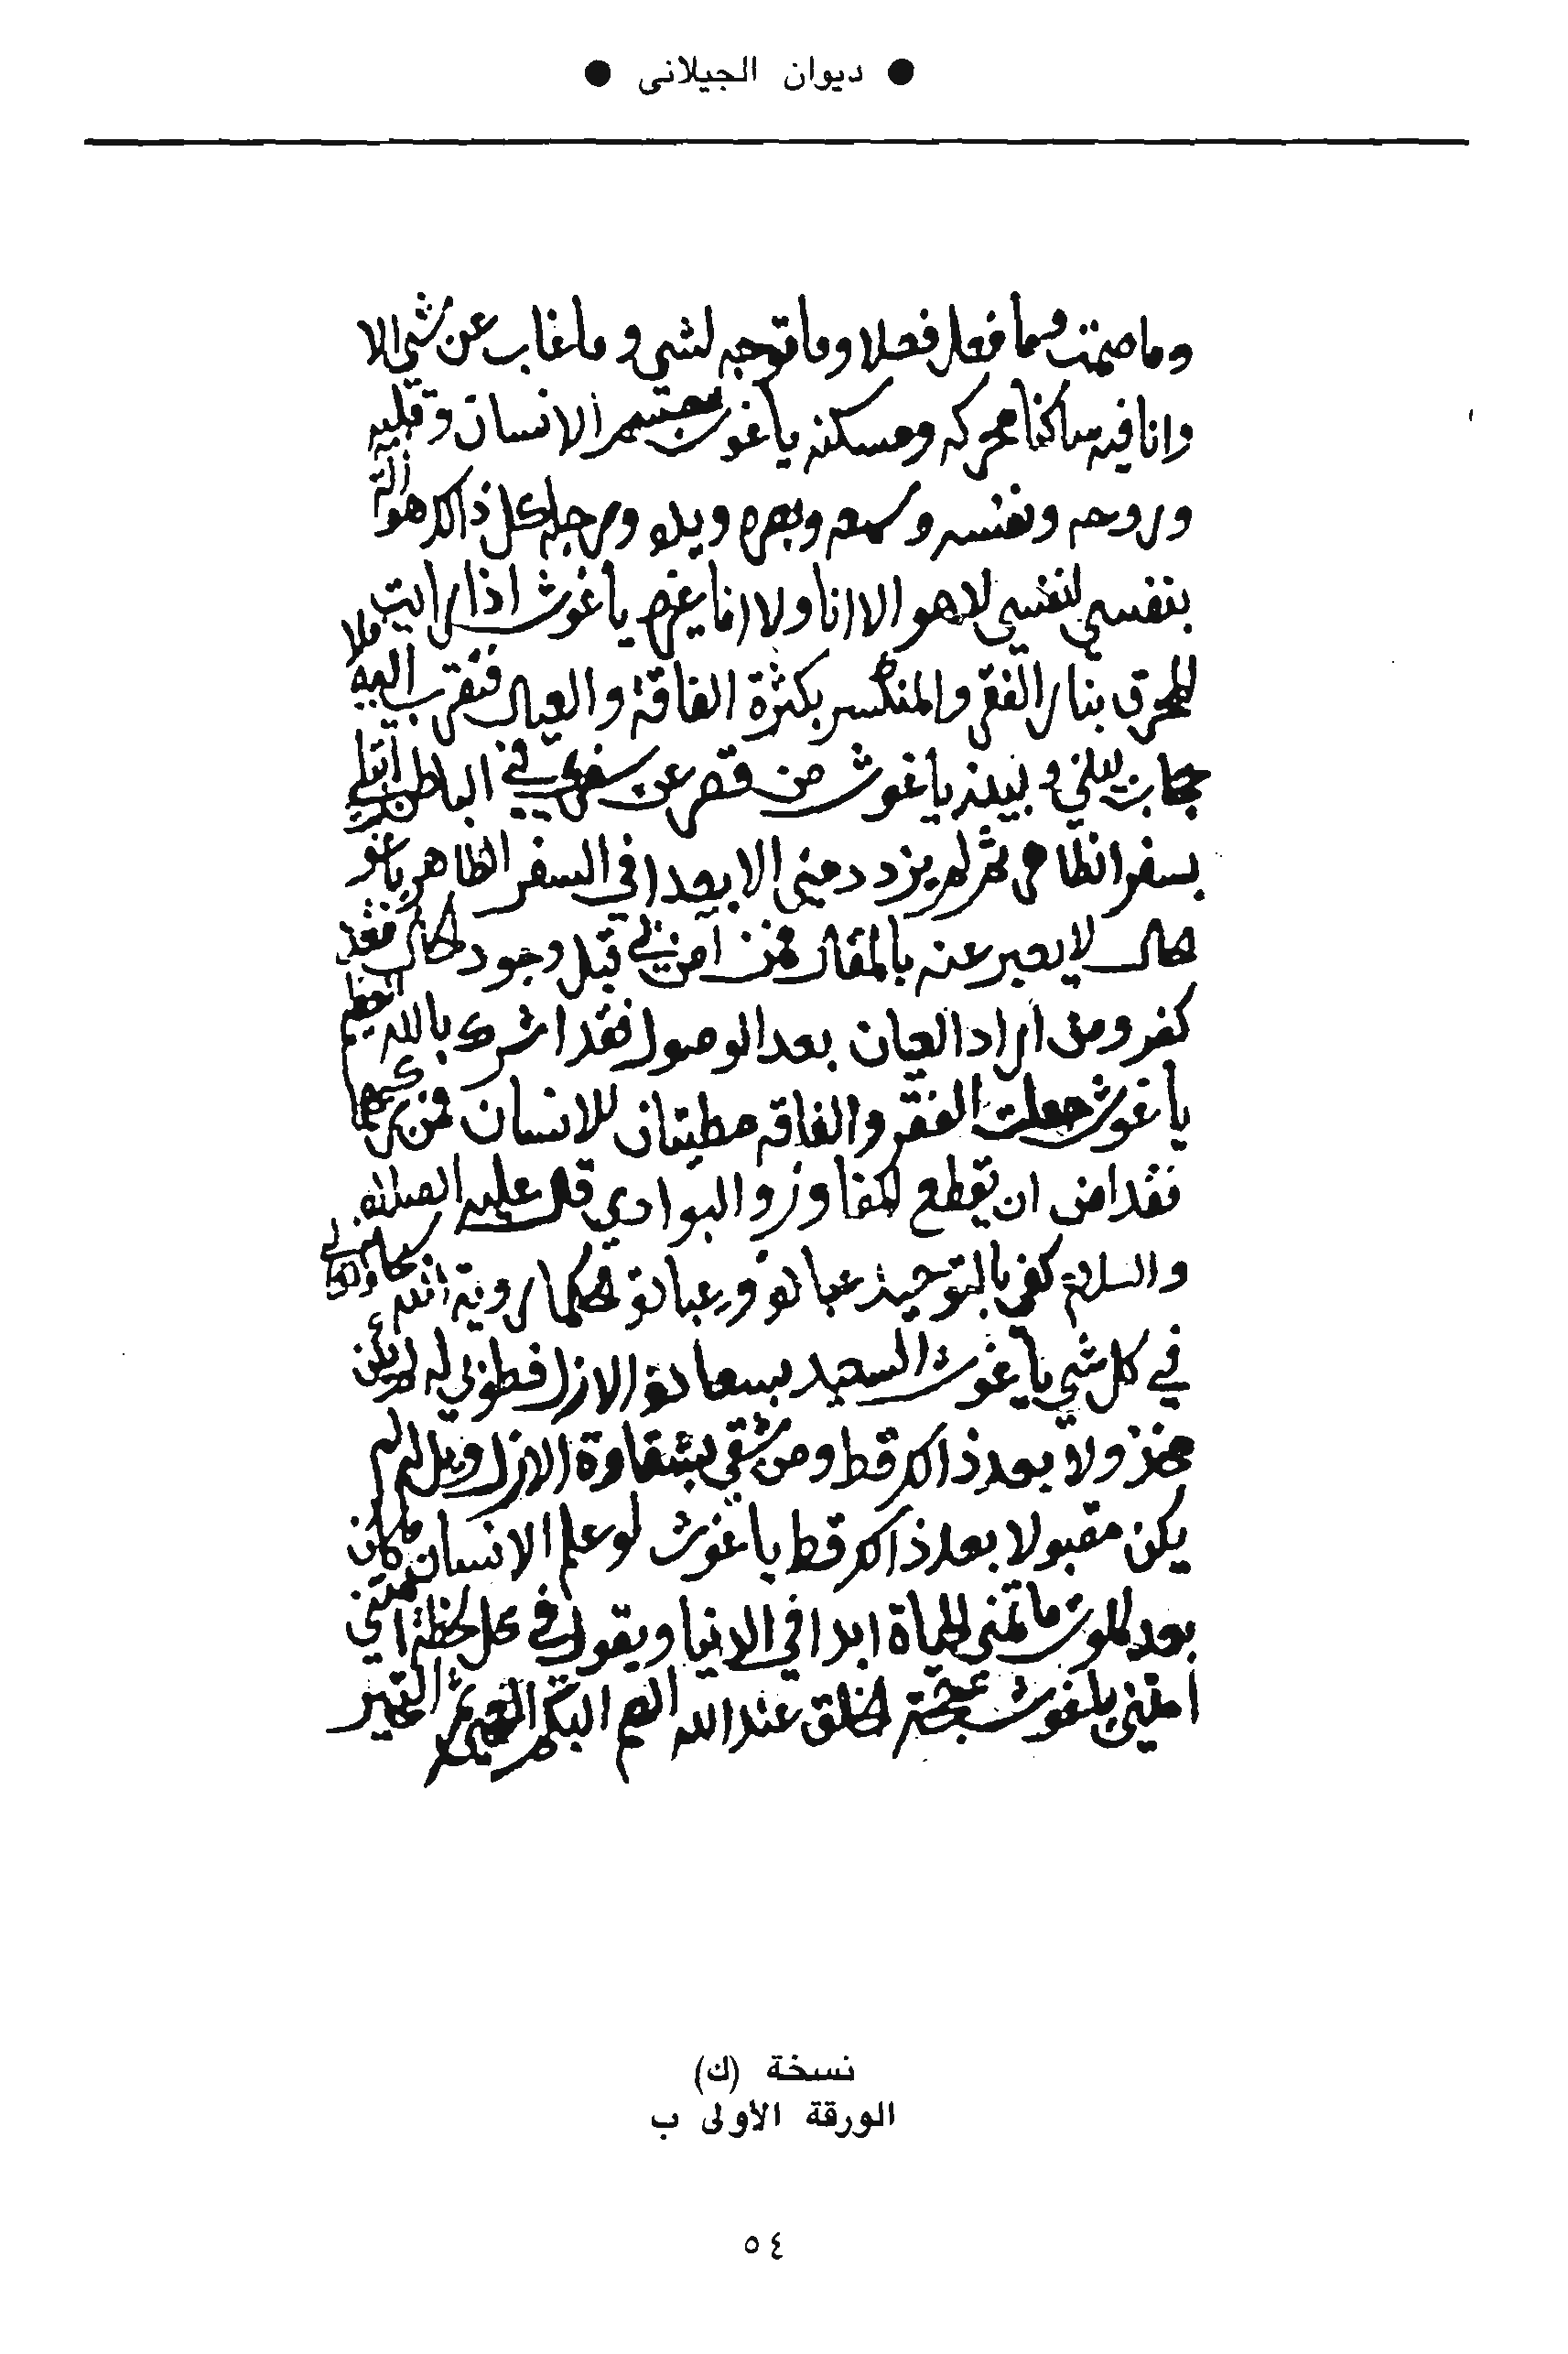 ● ديوان الجيلانى ●
وما صمت وما فعل فعلا وما توجه لشي وما غاب عن شي الا
وانا فيه ساكنا محركه ومسكنه ياغوث جسم الانسان وقلبه
وروحه ونفسه وسمعه وبصره ويده ورجله كل ذالك هو
بنفسي لنفسي لا هو الا انا ولا انا غيره ياغوث اذا رايت
المحرق بنار الفقر والمنكسر بكثرة الفاقة والعيال فتقرب اليه فلا
حجاب بيني وبينه ياغوث من قصر عن سفري في الباطن ابتلي
بسفر الظاهر ثم لم يزدد مني الا بعدا في السفر الظاهر ياغو
حال لا يعبر عنه بالمقال فمن آمن لي قبل وجود الحال فقد
كفر ومن اراد العيان بعد الوصول فقد اشرك بالله العظيم
ياغوث جعلت الفقر والفاقه مطيتان للانسان فمن
فقد ان تقطع المفاوز والبوادي قال عليه الصلاة
والسلام كفي بالتوحيد عبادة وعبادة روية الله
في كل شي ياغوث السعيد بسعادة الازل فطوبي له لم يكن
ولا بعد ذالك قط ومن شقي بشقاوة الازل ويل له لم
يكن مقبولا بعد ذالك قط ياغوث لو علم الانسان ما كان
بعد الموت ما تمني الحياة ابدا في الدنيا ويقول في كل لحظة امتني
امتني ياغوث الخلق عند الله الصم البكم العمي
نسخة (ك)
الورقة الأولى ب
٥٤